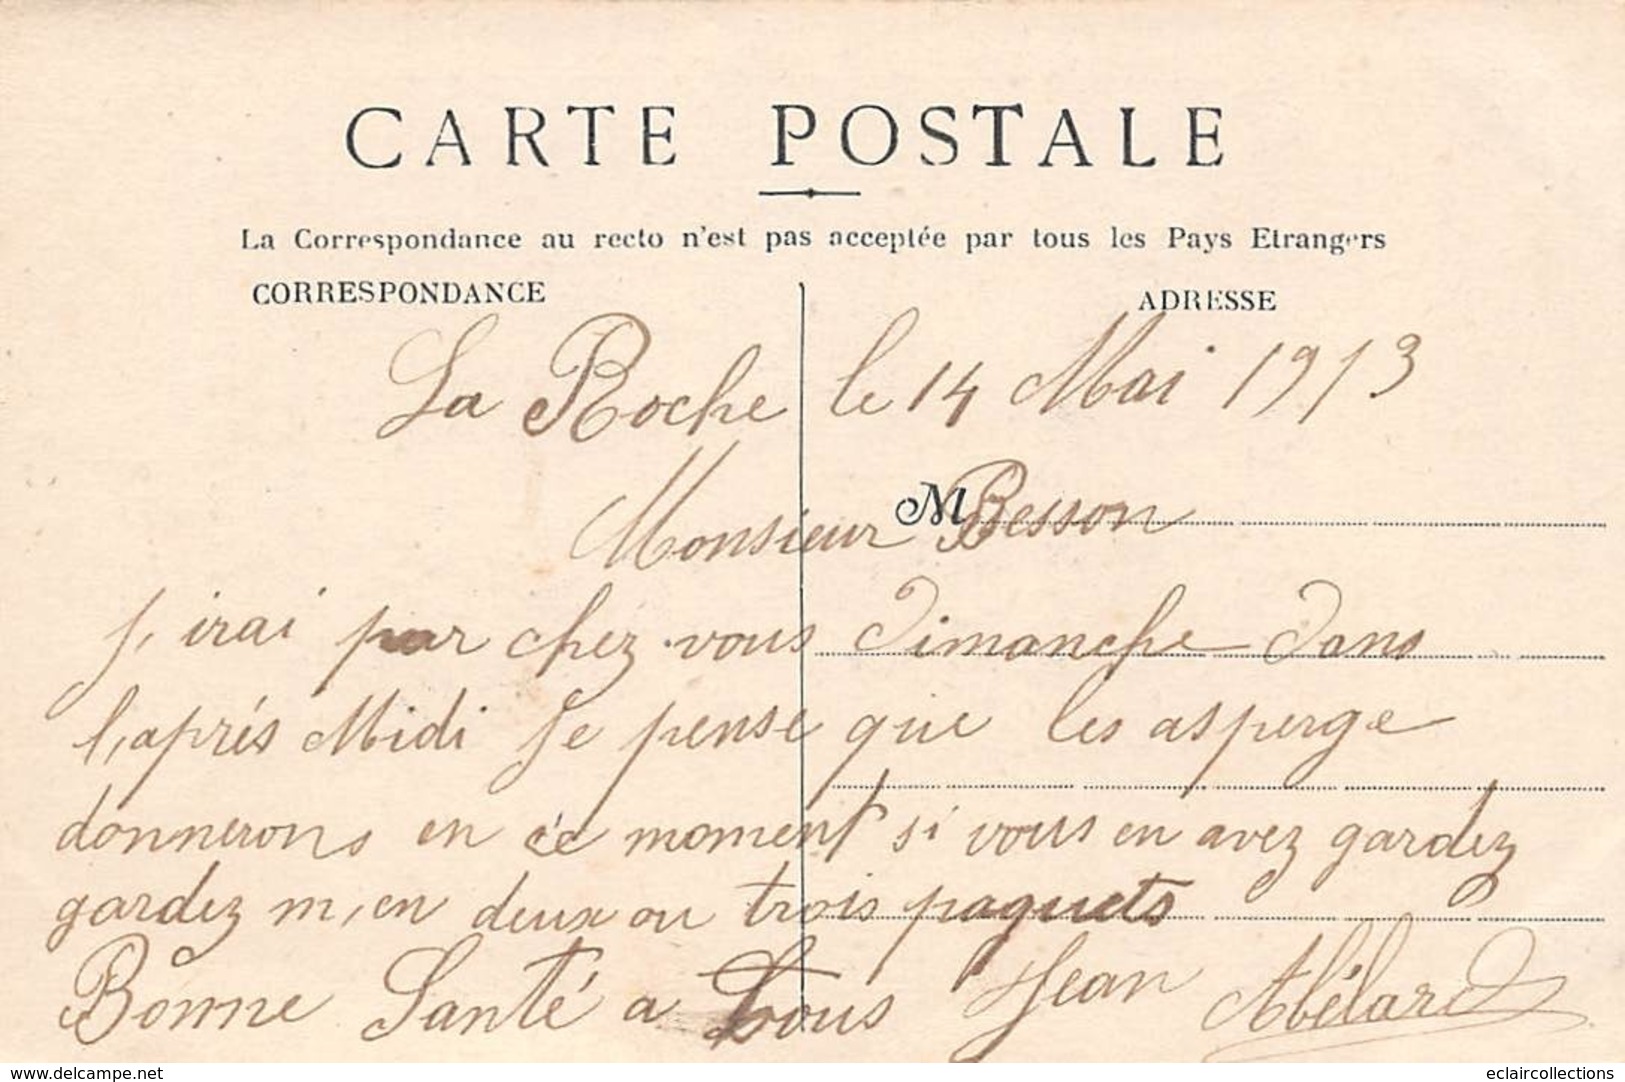 CARTE POSTALE
La Correspondance au recto n'est pas acceptée par tous les Pays Etrangers
CORRESPONDANCE
ADRESSE
La Roche le 14 Mai 1913
M
Monsieur Besson
J, irai par chez vous Dimanche dans
l, aprés Midi Je pense que les asperge
donnerons en ce moment si vous en avez gardez
gardez m, en deux ou trois paquets
Bonne Santé a Tous Jean Abélard
www.delcampe.net
eclaircollections